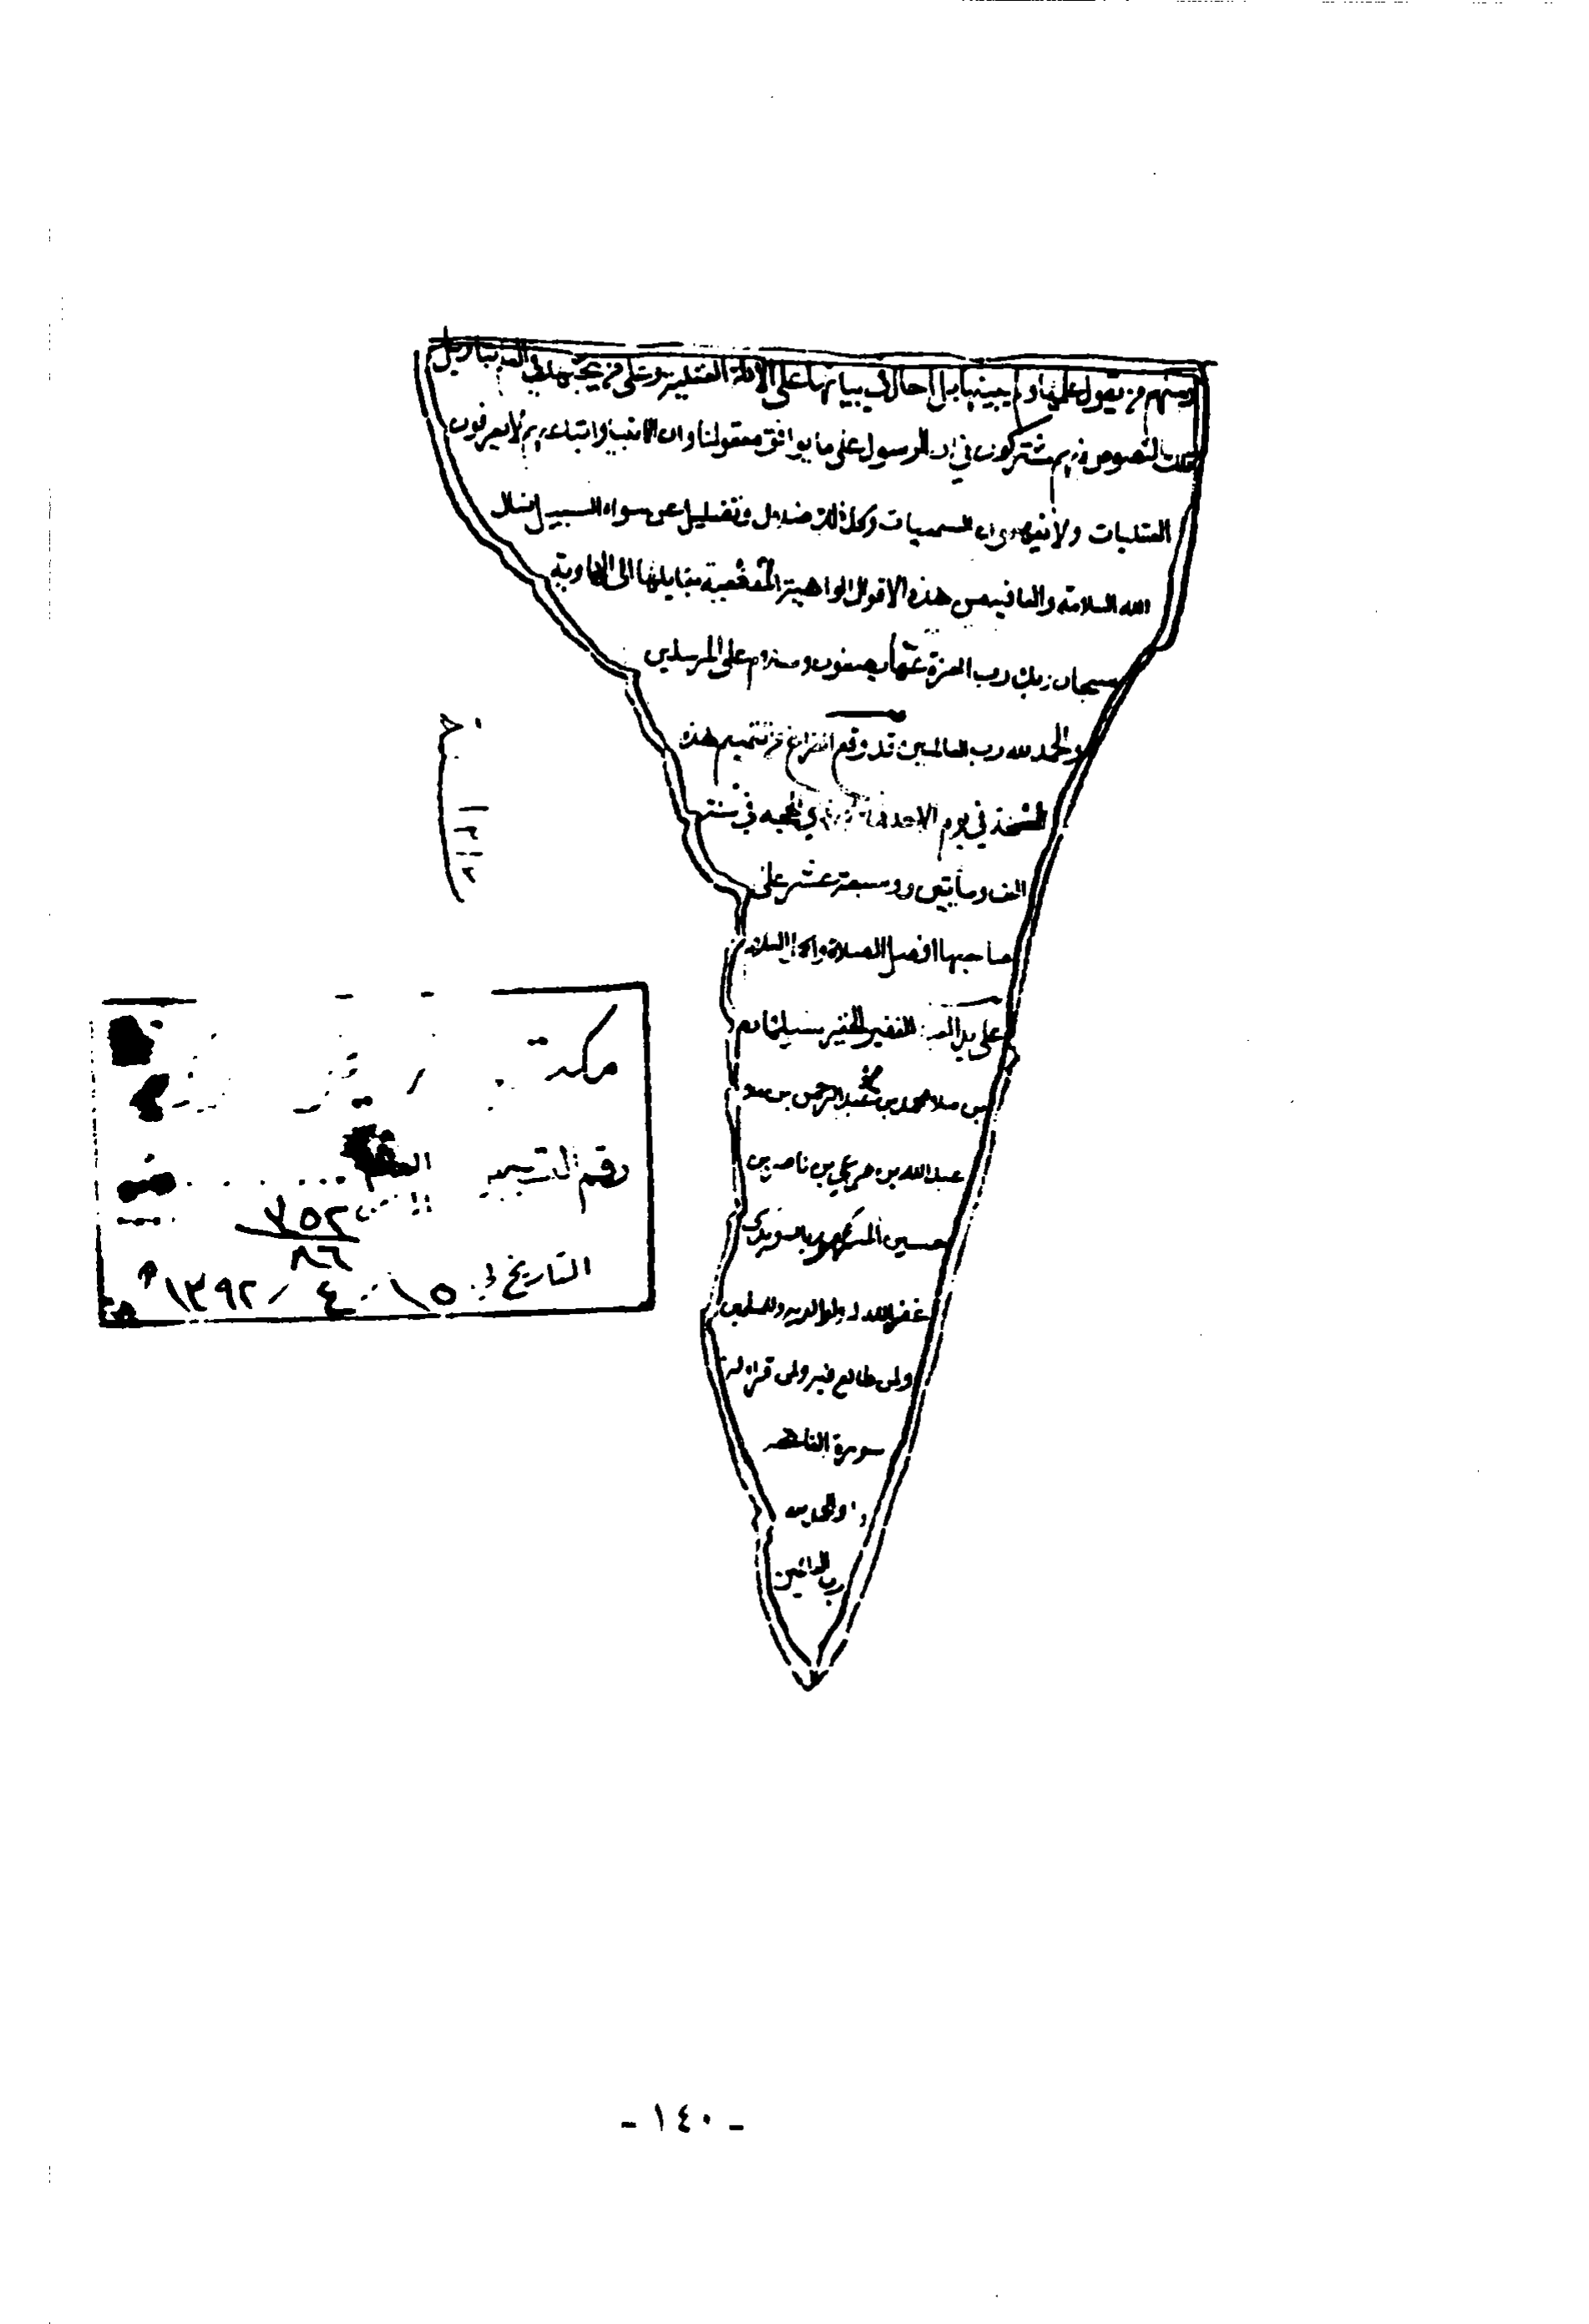 ومنهم من يقول علمها ولم يبينها بل احال في بيانها على الادلة العقلية وعلى من يجتهد في العلم بتاويل
تلك النصوص فهم مشتركون في ان الرسول على ما يوافق معقولنا وان الانبيا واتباعهم لا يعرفون
العقليات ولا يفهمون السمعيات وكل ذلك ضلال وتضليل عن سواء السبيل نسال
الله السلامة والعافية من هذه الاقوال الواهية المفضية بقايلها الى الهاوية
سبحان ربك رب العزة عما يصفون وسلام على المرسلين
والحمد لله رب العالمين قد وقع الفراغ من تتميم هذه
النسخة في يوم الاحد ذي الحجه في سنة
الف ومأيتين وسبعة عشر على
صاحبها افضل الصلاة والسلام
على يد الفقير الحقير سليمان
بن ملا محمد بن عبد الرحمن بن ملا
عبد الله بن مرعي بن ناصر بن
حسين المشهور بالسويدي
غفر الله له ولوالديه وللمسلمين
ولمن طالع فيه ولمن قرا له
سورة الفاتحه
والحمد لله
رب العالمين
١٢١٧
مكتبة
رقم التسجيل
٧٥٢
٨٦
التاريخ ١٥ / ٤ / ١٣٩٢
- ١٤٠ -